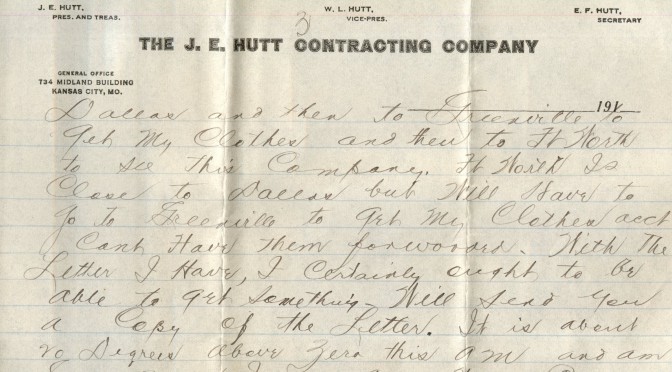 J. E. HUTT,
PRES. AND TREAS.
W. L. HUTT,
VICE-PRES.
E. F. HUTT,
SECRETARY
3
THE J. E. HUTT CONTRACTING COMPANY
GENERAL OFFICE
734 MIDLAND BUILDING
KANSAS CITY, MO.
191
Dallas and then to Greenville to
Get My Clothes and then to Ft Worth
to see this Company. Ft Worth Is
Close to Dallas but Will Have to
go to Greenville to Get My Clothes acct
Cant Have them forworded. With The
Letter I Have, I Certainly ought to be
able to Get something. Will Send you
a Copy of the Letter. It is about
20 Degrees above Zero this am and am